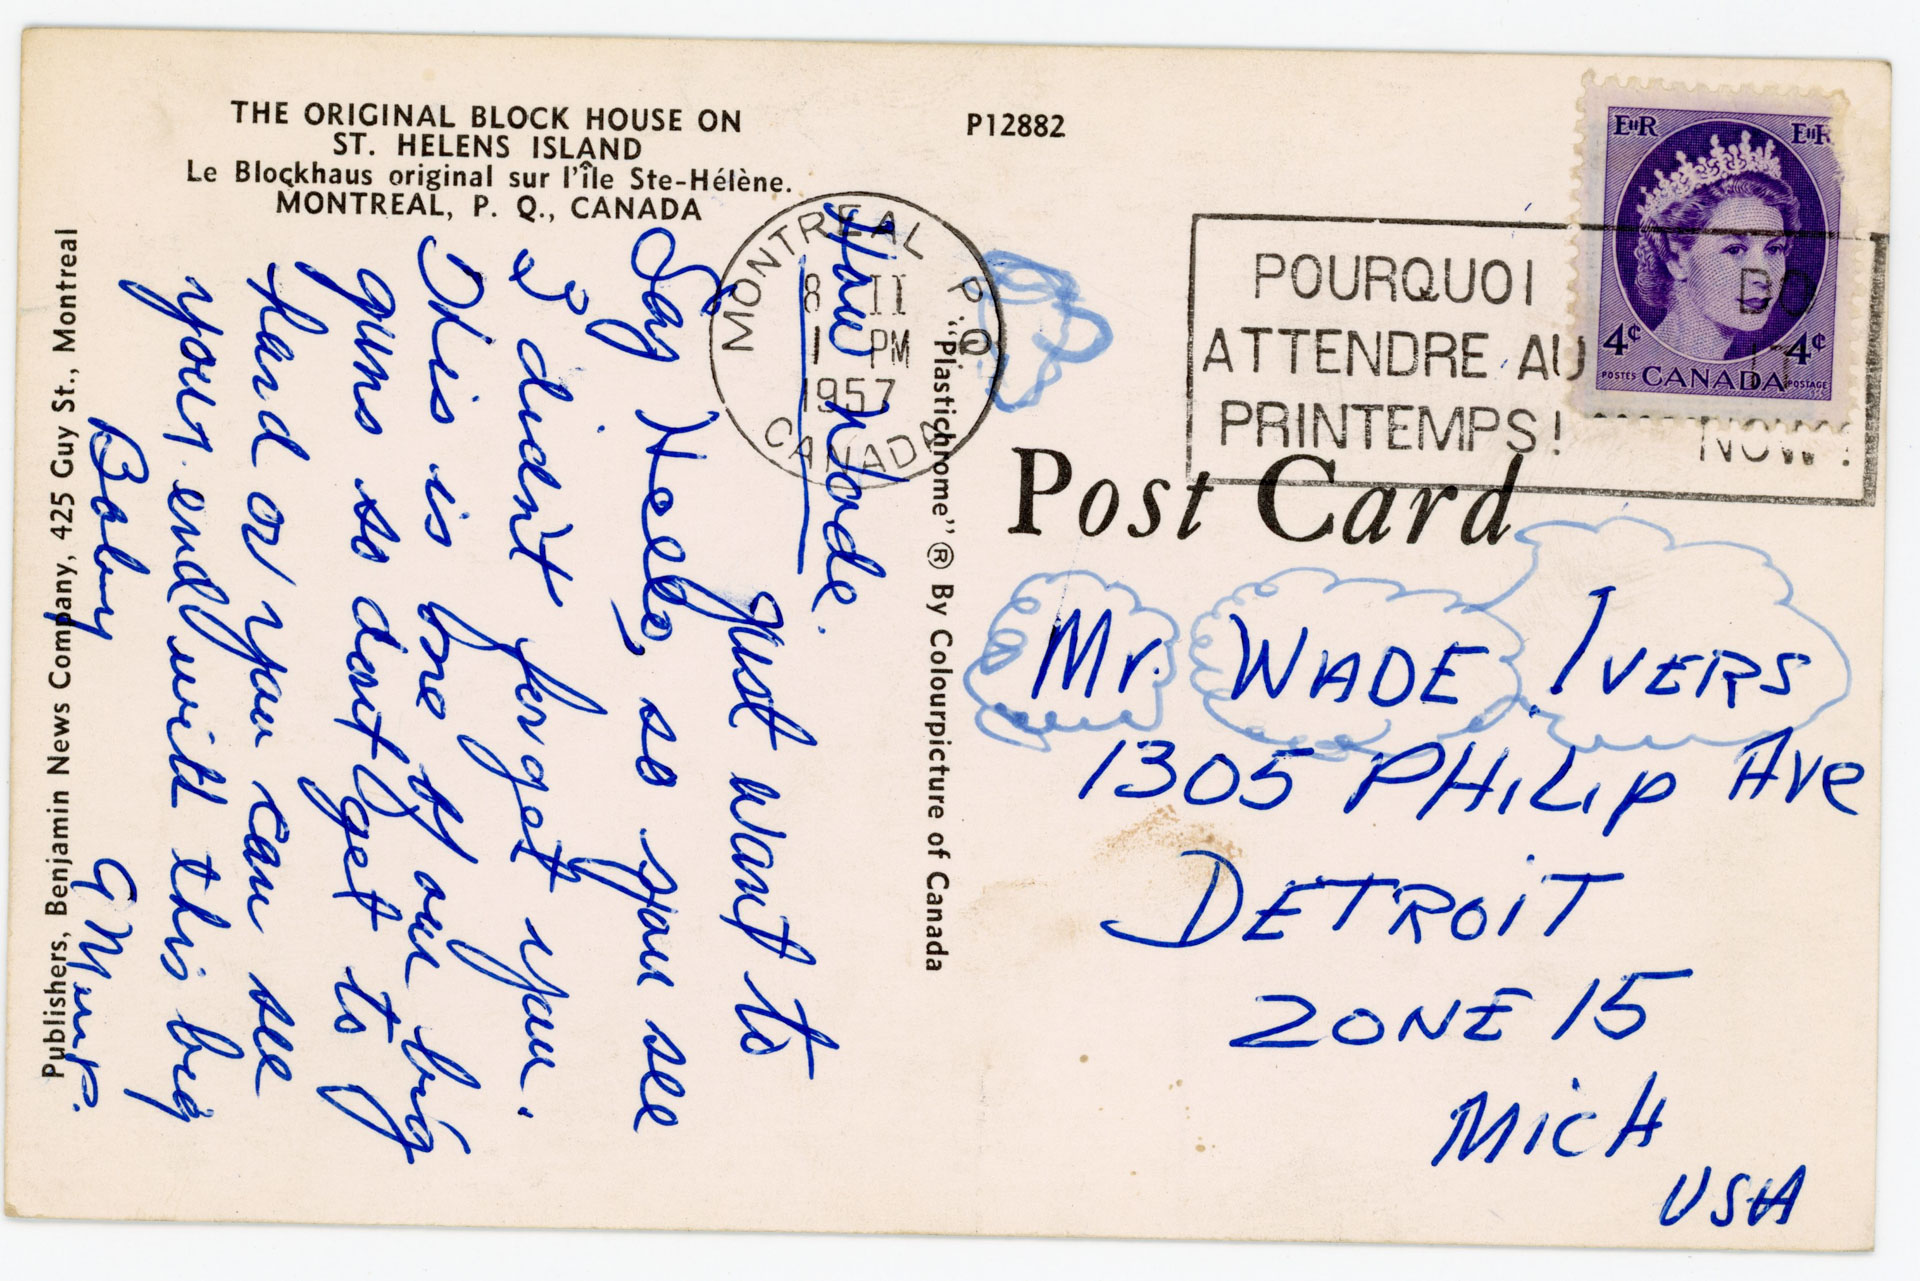 THE ORIGINAL BLOCK HOUSE ON
ST. HELENS ISLAND
Le Blockhaus original sur l'île Ste-Hélène.
MONTREAL, P. Q., CANADA
P12882
Publishers, Benjamin News Company, 425 Guy St., Montreal
Wade.
Just want to
Say Hello, so you see
I didn't forget you.
This is one of our big
guns so dont get to
or you can see
your end with this big
"Plastichrome" ® By Colourpicture of Canada
MONTREAL P.Q.
8 II
1 PM
1957
CANADA
POURQUOI DO
ATTENDRE AU IT
PRINTEMPS! NOW!
EIIR EIIR
4¢ 4¢
POSTES CANADA POSTAGE
Post Card
Mr. WADE IVERS
1305 PHILIP Ave
DETROIT
ZONE 15
MICH
USA